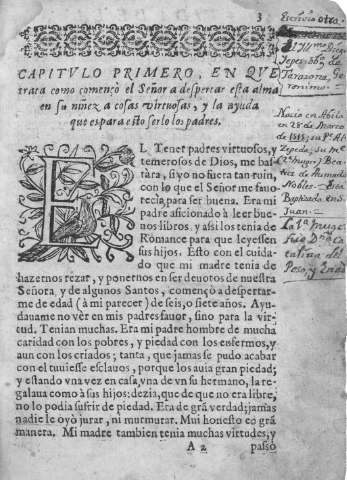 3
CAPITVLO PRIMERO, EN QVE
trata como començò el Señor a despertar esta alma
en su niñez a cosas virtuosas, y la ayuda
que es para esto serlo los padres.
EL Tener padres virtuosos, y
temerosos de Dios, me bas
tàra, si yo no fuera tan ruin,
con lo que el Señor me fauo-
recia, para ser buena. Era mi
padre aficionado à leer bue-
nos libros, y assi los tenia de
Romance para que leyessen
sus hijos. Esto con el cuida-
do que mi madre tenia de
hazernos rezar, y ponernos en ser deuotos de nuestra
Señora, y de algunos Santos, començò a despertar-
me de edad (à mi parecer) de seis, o siete años. Ayu-
dauame no vèr en mis padres fauor, sino para la vir-
tud. Tenian muchas. Era mi padre hombre de mucha
caridad con los pobres, y piedad con los enfermos, y
aun con los criados; tanta, que jamas se pudo acabar
con el tuuiesse esclauos, porque los auia gran piedad;
y estando vna vez en casa, vna de vn su hermano, la re-
galaua como à sus hijos: dezia, que de que no era libre,
no lo podia sufrir de piedad. Era de grã verdad; jamas
nadie le oyò jurar, ni murmurar. Mui honesto eõ grã
manera. Mi madre tambien tenia muchas virtudes, y
A 2 passò
Escriuio otra
Yepes
Tarazona,
Nacio en Abila
en 28 de Marzo
de 1515,
Zepeda,
Nobles.
Baptizada en S.
Juan.
La 1ª muger
fue Dª Ca
talina del
Peso, y